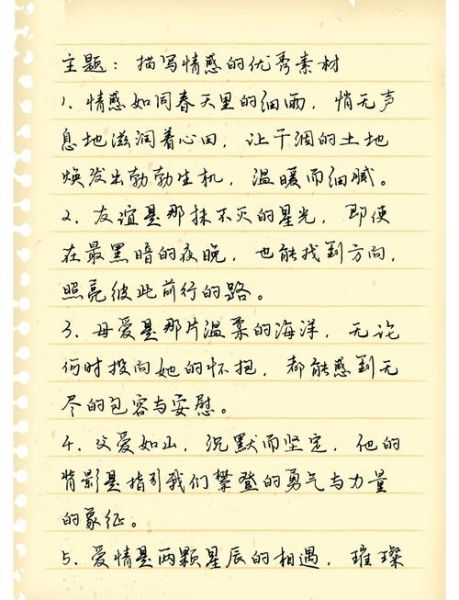 主题：描写情感的优秀素材
1、情感如同春天里的细雨，悄无声
息地滋润着心田，让干涸的土地
焕发出勃勃生机，温暖而细腻。
2、友谊是那抹不灭的星光，即使
在最黑暗的夜晚，也能找到方向，
照亮彼此前行的路。
3、母爱是那片温柔的海洋，无论
何时投向她的怀抱，都能感到无
尽的包容与安慰。
4、父爱如山，沉默而坚定，他的
背影是指引我们攀登的勇气与力量
的象征。
5、爱情是两颗星辰的相遇，璀璨